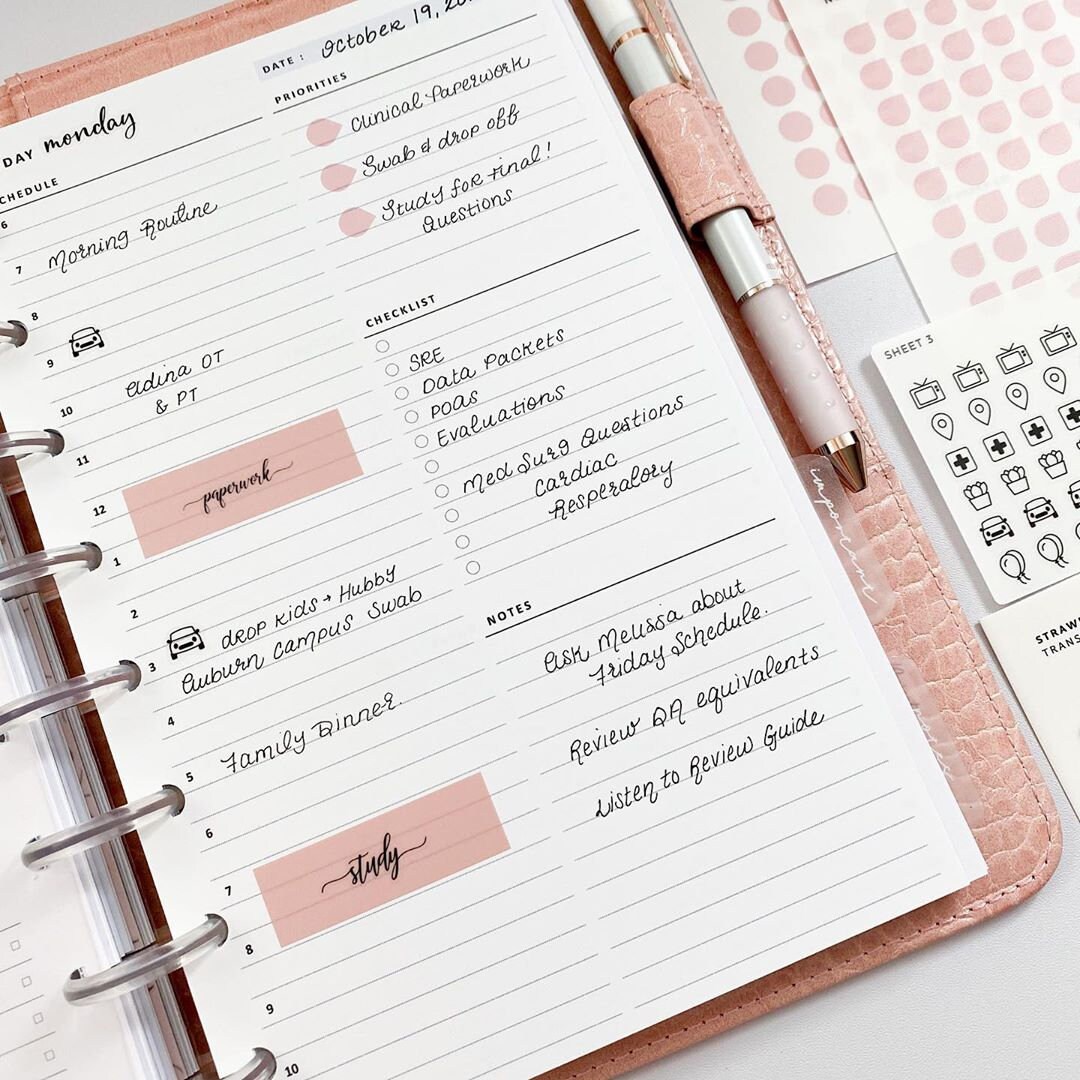 DATE : October 19, 20
DAY monday
PRIORITIES
Clinical Paperwork
Swab & drop off
Study for Final!
Questions
CHEDULE
6
7 Morning Routine
8
9
10 Adina OT
& PT
11
12 paperwork
1
2
3 drop kids → Hubby
Auburn campus Swab
4
5 Family Dinner.
6
7 study
8
9
10
CHECKLIST
SRE
Data Packets
POAS
Evaluations
Med Surg Questions
Cardiac
Resperatory
NOTES
Ask Melissa about
Friday Schedule.
Review DA equivalents
Listen to Review Guide
important
SHEET 3
STRAW
TRANS